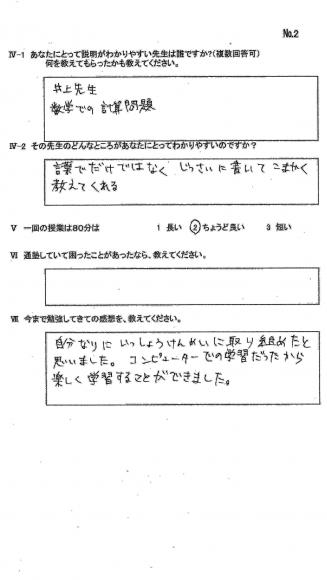 No.2
Ⅳ-1 あなたにとって説明がわかりやすい先生は誰ですか?(複数回答可)
何を教えてもらったかも教えてください。
井上先生
数学での計算問題
Ⅳ-2 その先生のどんなところがあなたにとってわかりやすいのですか?
言葉でだけではなく じっさいに書いて こまかく
教えてくれる
Ⅴ 一回の授業は80分は 1 長い ②ちょうど良い 3 短い
Ⅵ 通塾していて困ったことがあったなら、教えてください。
Ⅶ 今まで勉強してきての感想を、教えてください。
自分なりに いっしょうけんめいに取り組めたと
思いました。コンピューターでの学習だったから
楽しく学習することができました。